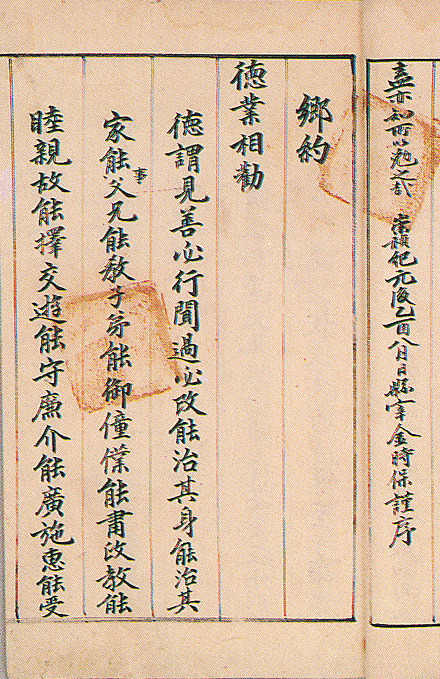 盍亦知所以勉之哉 崇禎紀元後乙酉八月日縣宰金時保謹序
鄉約
德業相勸
德謂見善必行聞過必改能治其身能治其
家能事父兄能敎子弟能御僮僕能肅政敎能
睦親故能擇交遊能守廉介能廣施惠能受